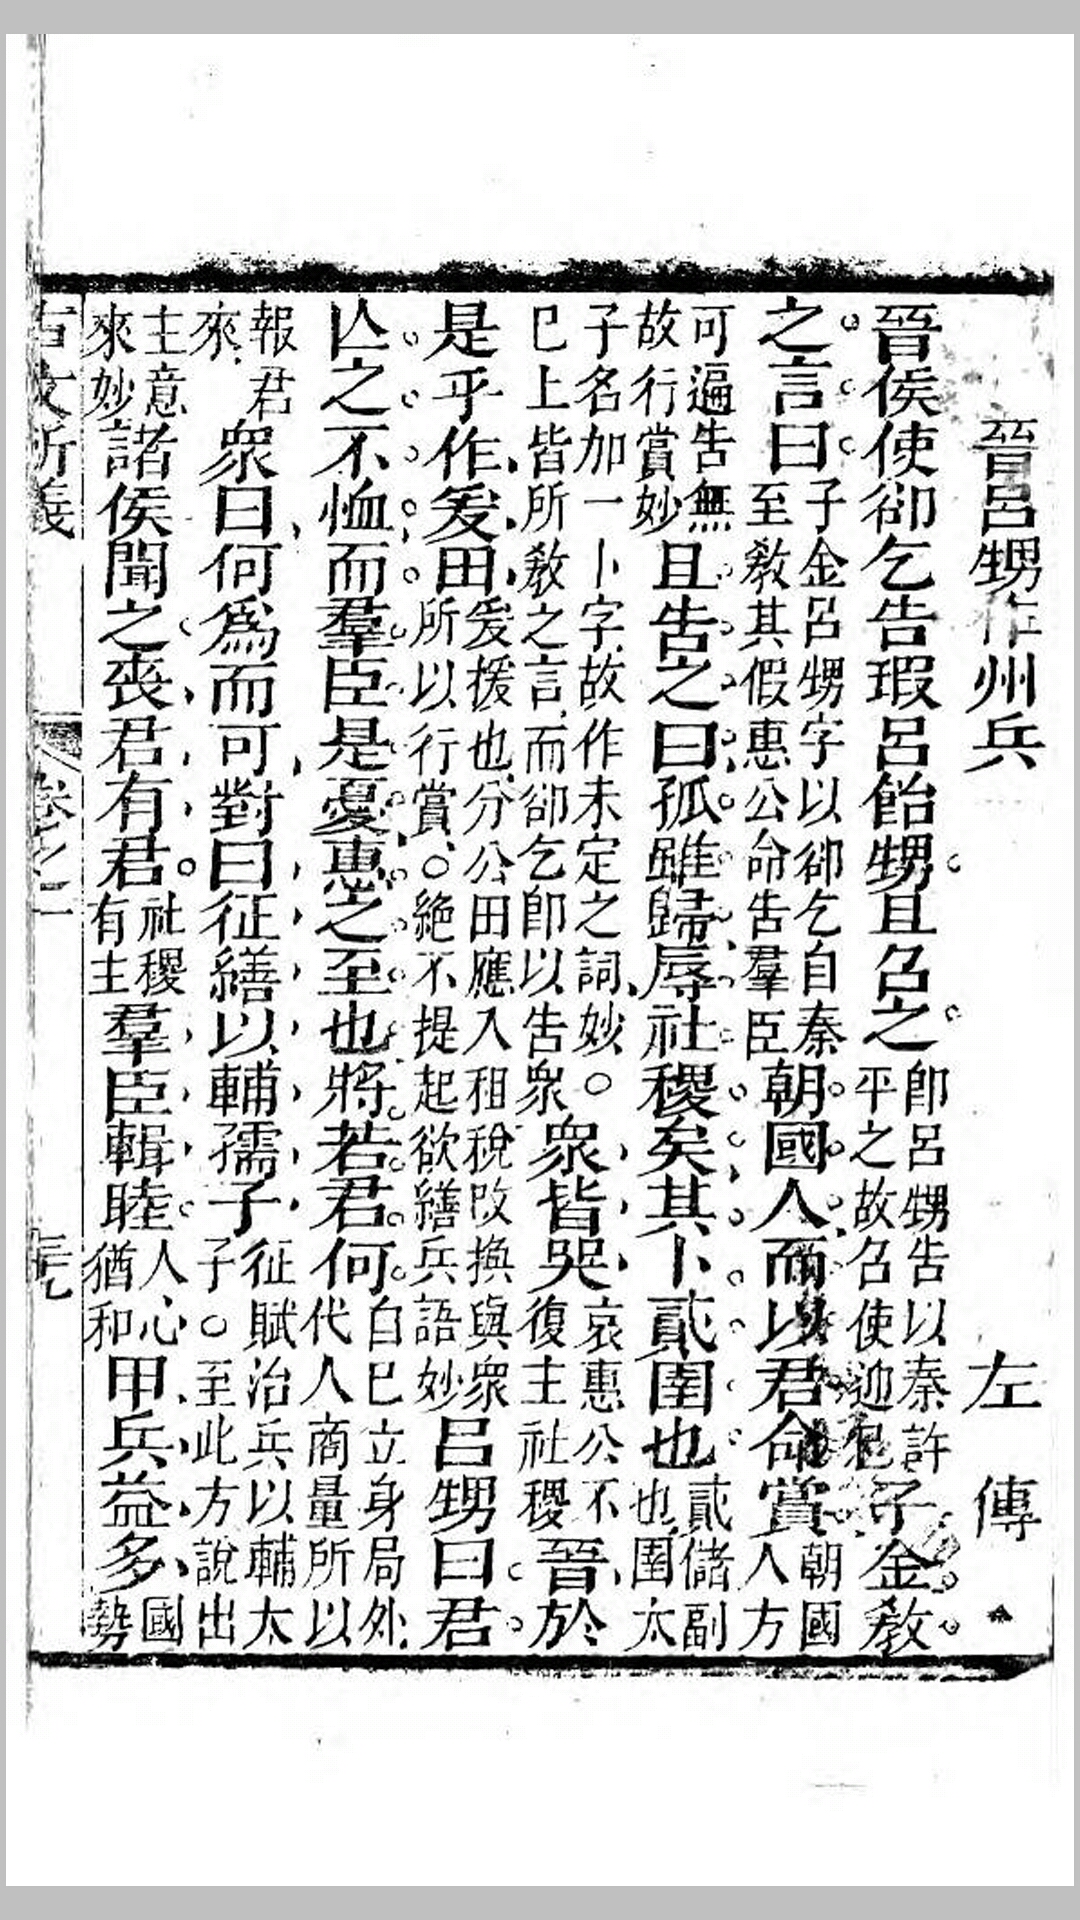 晉呂甥作州兵　左傳
晉侯使郤乞告瑕呂飴甥且召之即呂甥告以秦許平之故召使迎己子金教
之言曰子金呂甥字以郤乞自秦至教其假惠公命告羣臣朝國人而以君命賞朝國人方
可遍告無故行賞妙且告之曰孤雖歸辱社稷矣其卜貳圉也貳儲副也圉太
子名加一卜字故作未定之詞妙○已上皆所教之言而郤乞即以告衆衆皆哭哀惠公不復主社稷晉於
是乎作爰田爰援也分公田應入租稅改換與衆所以行賞○絕不提起欲繕兵語妙呂甥曰君
亾之不恤而羣臣是憂惠之至也將若君何自已立身局外代人商量所以
報君來衆曰何爲而可對曰征繕以輔孺子征賦治兵以輔太子○至此方說出
主意來妙諸侯聞之喪君有君社稷有主羣臣輯睦人心猶和甲兵益多國勢
古文析義　卷之一